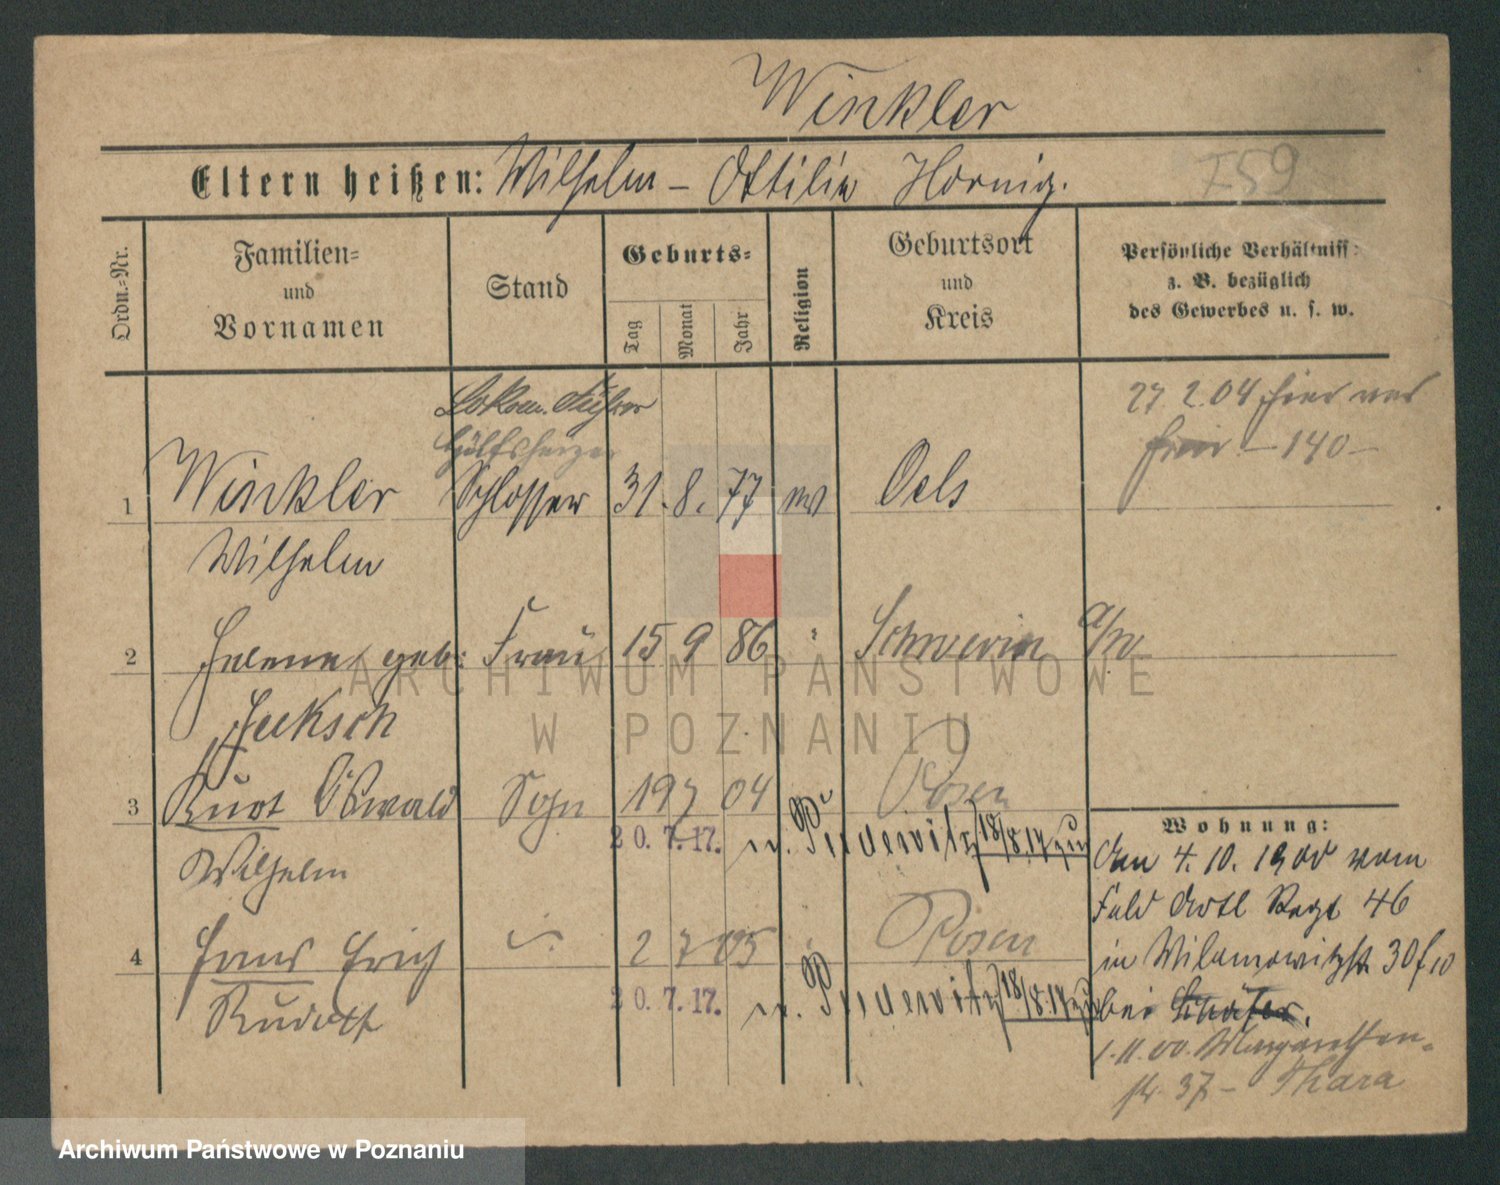 Winkler
Eltern heißen: Wilhelm – Ottilie Hornig.
759
Ordn.-Nr.
Familien-
und
Vornamen
Stand
Geburts-
Tag
Monat
Jahr
Religion
Geburtsort
und
Kreis
Persönliche Verhältniss
z. B. bezüglich
des Gewerbes u. s. w.
Lokom. Führer
27.2.04 hier
Hülfsheizer
– 140 –
1 Winkler Schlosser 31. 8. 77 ev Oels
Wilhelm
2 Helene geb: Frau 15 9 86 " Schwerin a/W
Jacksch
3 Kurt Oswald Sohn 19 7 04 Posen
20. 7. 17. n. Pudewitz 18/8.17 zu
Wilhelm
4 Hans Erich 2 7 05 Posen
20. 7. 17. n. Pudewitz 18/8.17 zu
Rudolf
Wohnung:
Am 4. 10. 1900 vom
Feld Artl Regt 46
in Wilamowitzstr 30
bei
1.11.00. Margarethen-
str. 37 – Thara
ARCHIWUM PAŃSTWOWE
W POZNANIU
Archiwum Państwowe w Poznaniu